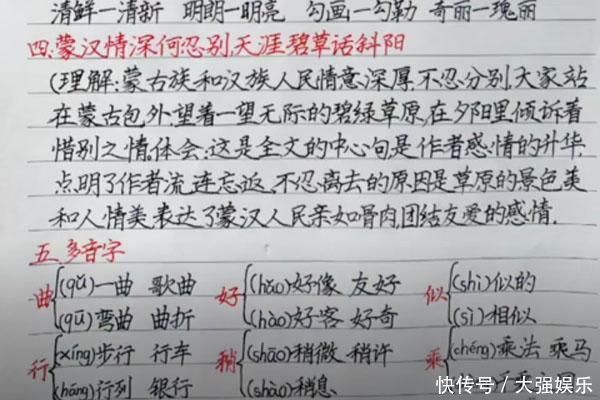 清鲜—清新 明朗—明亮 勾画—勾勒 奇丽—瑰丽
四.蒙汉情深何忍别,天涯碧草话斜阳
(理解:蒙古族和汉族人民情意深厚,不忍分别,大家站
在蒙古包外,望着一望无际的碧绿草原,在夕阳里倾诉着
惜别之情.体会:这是全文的中心句,是作者感情的升华,
点明了作者流连忘返、不忍离去的原因是草原的景色美
和人情美,表达了蒙汉人民亲如骨肉团结友爱的感情.
五.多音字
曲 (qǔ)一曲 歌曲 好 (hǎo)好像 友好 似 (shì)似的
(qū)弯曲 曲折 (hào)好客 好奇 (sì)相似
行 (xíng)步行 行车 稍 (shāo)稍微 稍许 乘 (chéng)乘法 乘马
(háng)行列 银行 (shào)稍息
快传号/大强娱乐